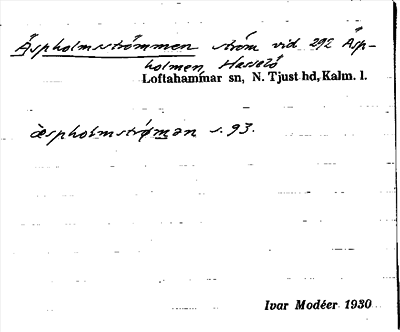 Äspholmsströmmen ström vid 292 Äsp-
holmen, Hasselö
Loftahammar sn, N. Tjust hd, Kalm. l.
æspholmstrǿmən s. 93.
Ivar Modéer 1930